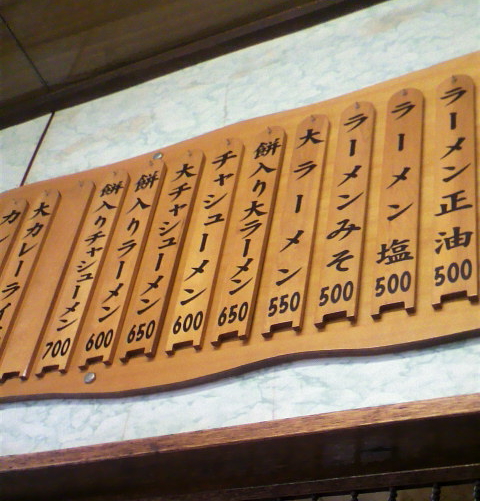 ラーメン正油 500
ラーメン塩 500
ラーメンみそ 500
大ラーメン 550
餅入り大ラーメン 650
チャシューメン 600
大チャシューメン 650
餅入りラーメン 600
餅入りチャシューメン 700
大カレーライ
カレ